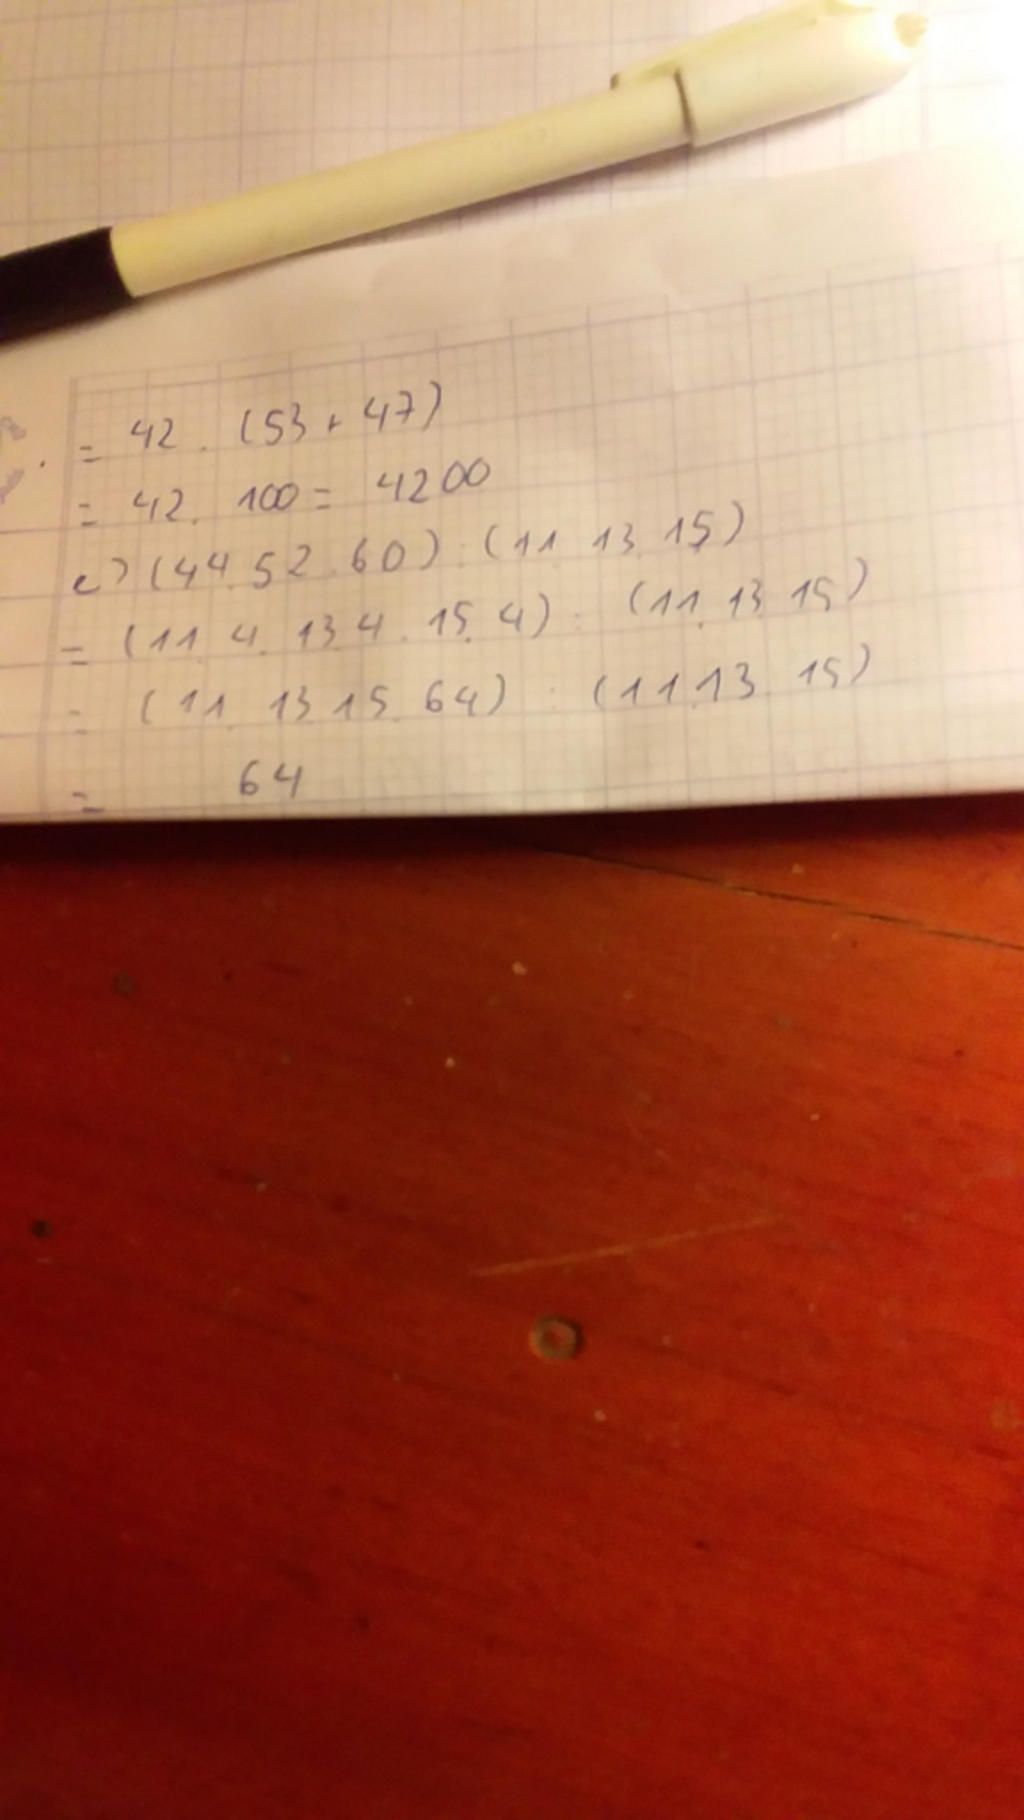 = 42 . (53 + 47)
= 42 . 100 = 4200
e) (44 . 52 . 60) : (11 . 13 . 15)
= (11 . 4 . 13 . 4 . 15 . 4) : (11 . 13 . 15)
= (11 . 13 . 15 . 64) : (11 . 13 . 15)
= 64